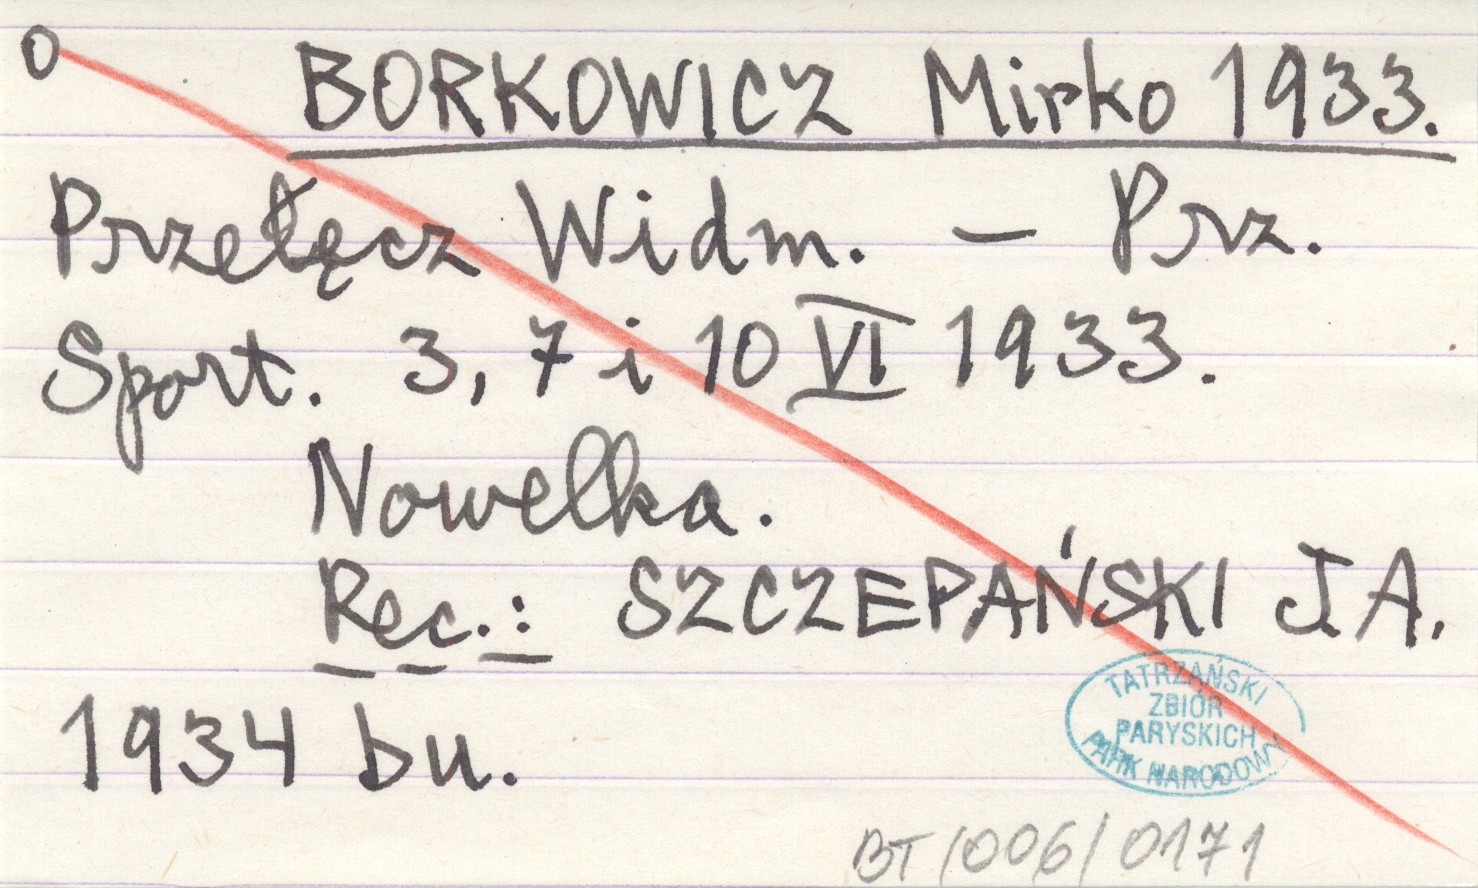 O BORKOWICZ Mirko 1933.
Przełęcz Widm. – Prz.
Sport. 3, 7 i 10 VI 1933.
Nowelka.
Rec.: SZCZEPAŃSKI J.A.
1934 bu.
TATRZAŃSKI
ZBIÓR
PARYSKICH
PARK NARODOWY
BT/006/0171